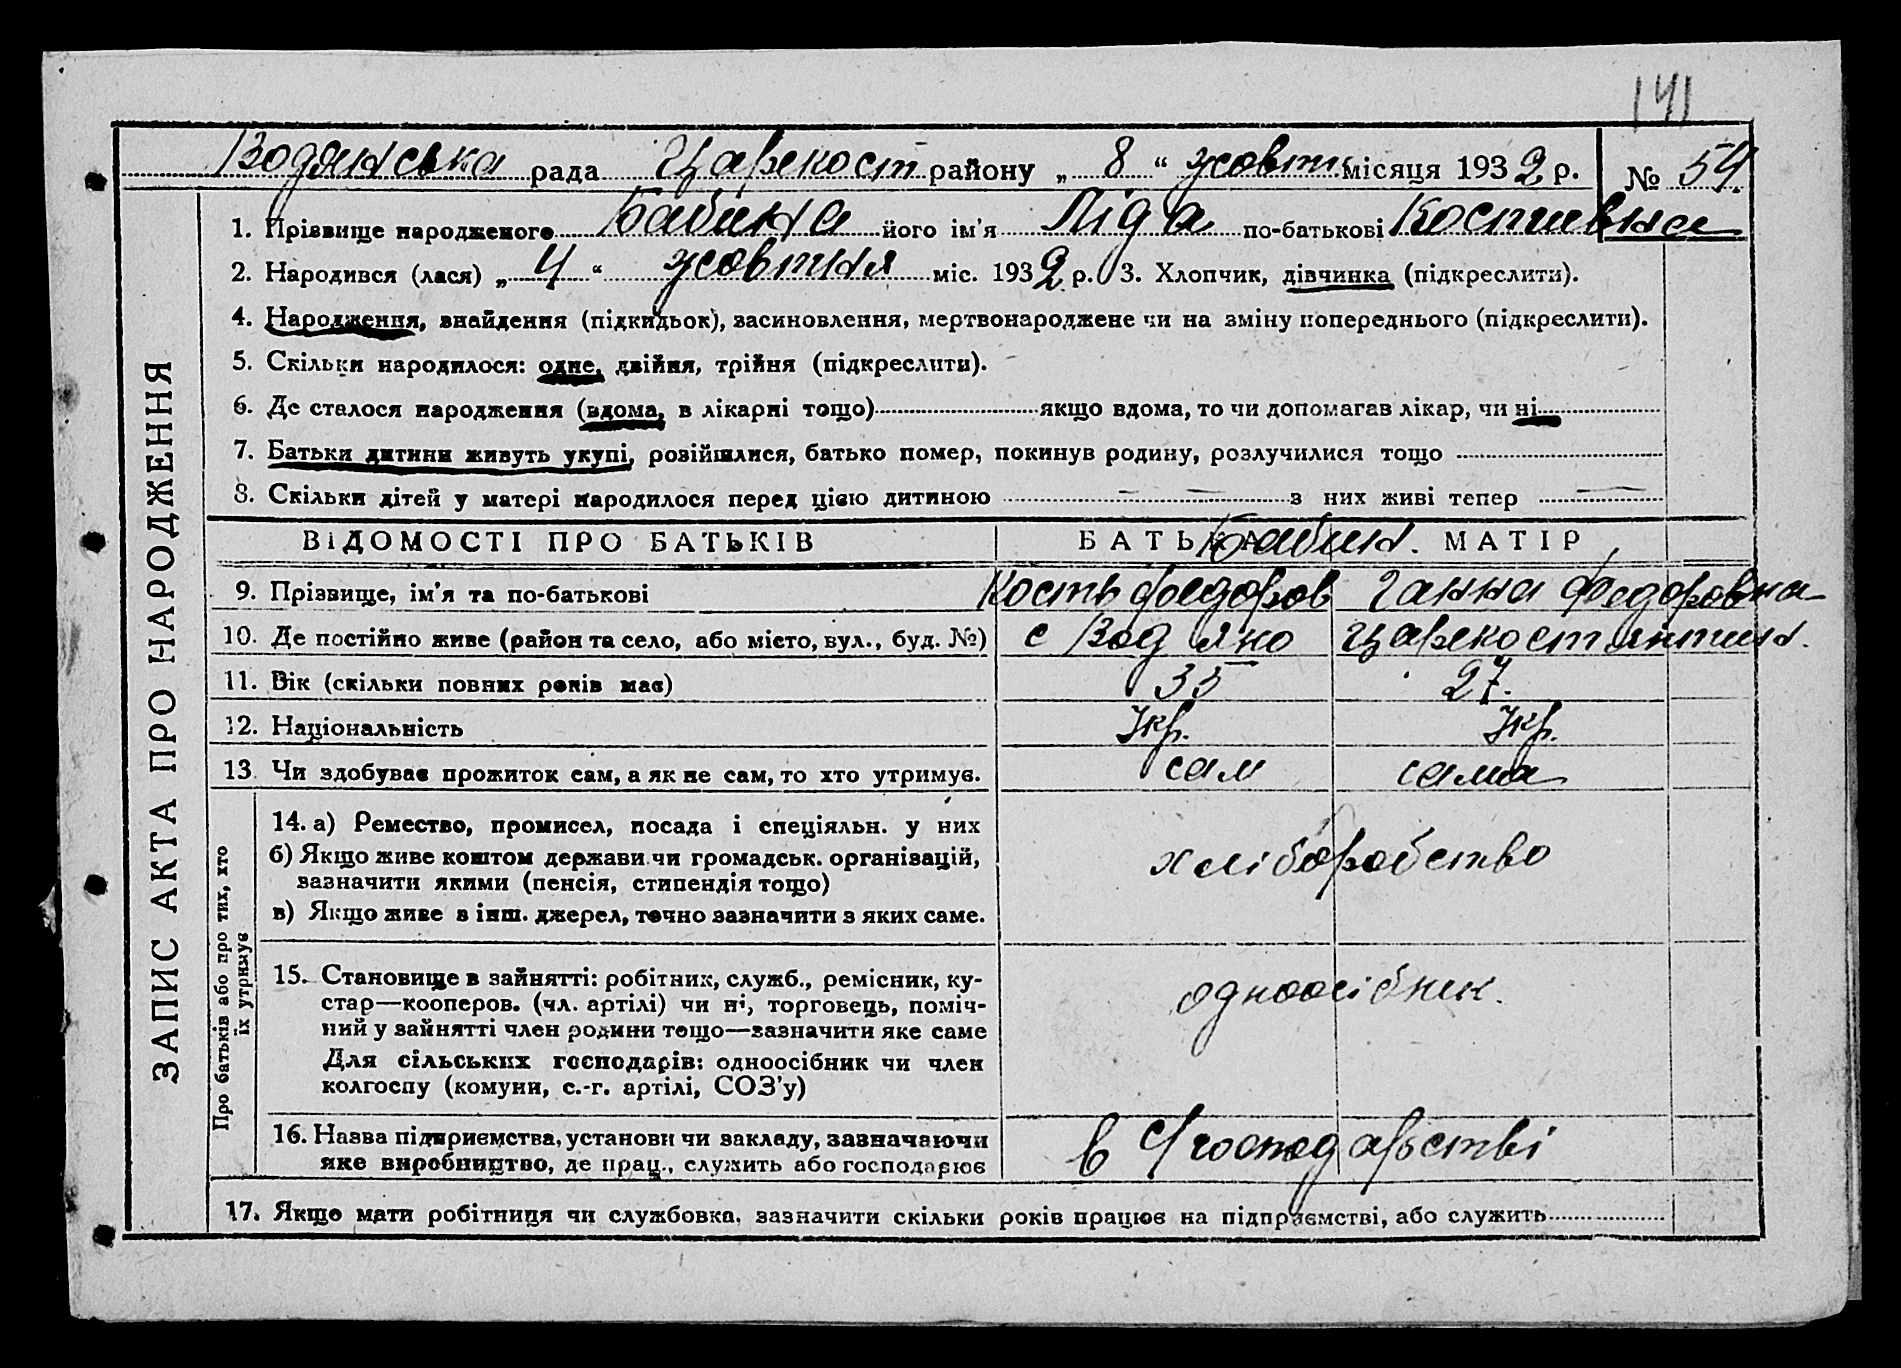 141
Водянська рада Царекост району „ 8 “ жовт. місяця 1932 р. № 54
1. Прізвище народженого Бабина його ім'я Ліда по-батькові Костивна
2. Народився (лася) „ 4 “ жовтня міс. 1932 р. 3. Хлопчик, дівчинка (підкреслити).
4. Народження, знайдення (підкидьок), засиновлення, мертвонароджене чи на зміну попереднього (підкреслити).
5. Скільки народилося: одне, двійня, трійня (підкреслити).
6. Де сталося народження (вдома, в лікарні тощо) якщо вдома, то чи допомагав лікар, чи ні
7. Батьки дитини живуть укупі, розійшлися, батько помер, покинув родину, розлучилися тощо
8. Скільки дітей у матері народилося перед цією дитиною — з них живі тепер —
ВІДОМОСТІ ПРО БАТЬКІВ БАТЬКА Бабин. МАТІР
9. Прізвище, ім'я та по-батькові Кость Федоров Ганна Федоровна
10. Де постійно живе (район та село, або місто, вул., буд. №) с Водяно Царекостянтин.
11. Вік (скільки повних років має) 35 27.
12. Національність Укр. Укр.
13. Чи здобуває прожиток сам, а як не сам, то хто утримує. сам сама
14. а) Ремество, промисел, посада і спеціяльн. у них
б) Якщо живе коштом держави чи громадськ. організацій,
зазначити якими (пенсія, стипендія тощо)
хліборобство
в) Якщо живе з інш. джерел, точно зазначити з яких саме.
15. Становище в зайнятті: робітник, служб., ремісник, ку-
стар—кооперов. (чл. артілі) чи ні, торговець, поміч-
ний у зайнятті член родини тощо—зазначити яке саме
одноосібник.
Для сільських господарів: одноосібник чи член
колгоспу (комуни, с.-г. артілі, СОЗ'у)
16. Назва підприємства, установи чи закладу, зазначаючи
яке виробництво, де прац., служить або господарює
в С/господарстві
17. Якщо мати робітниця чи службовка, зазначити скільки років працює на підприємстві, або служить
ЗАПИС АКТА ПРО НАРОДЖЕННЯ
Про батьків або про тих, хто
їх утримує